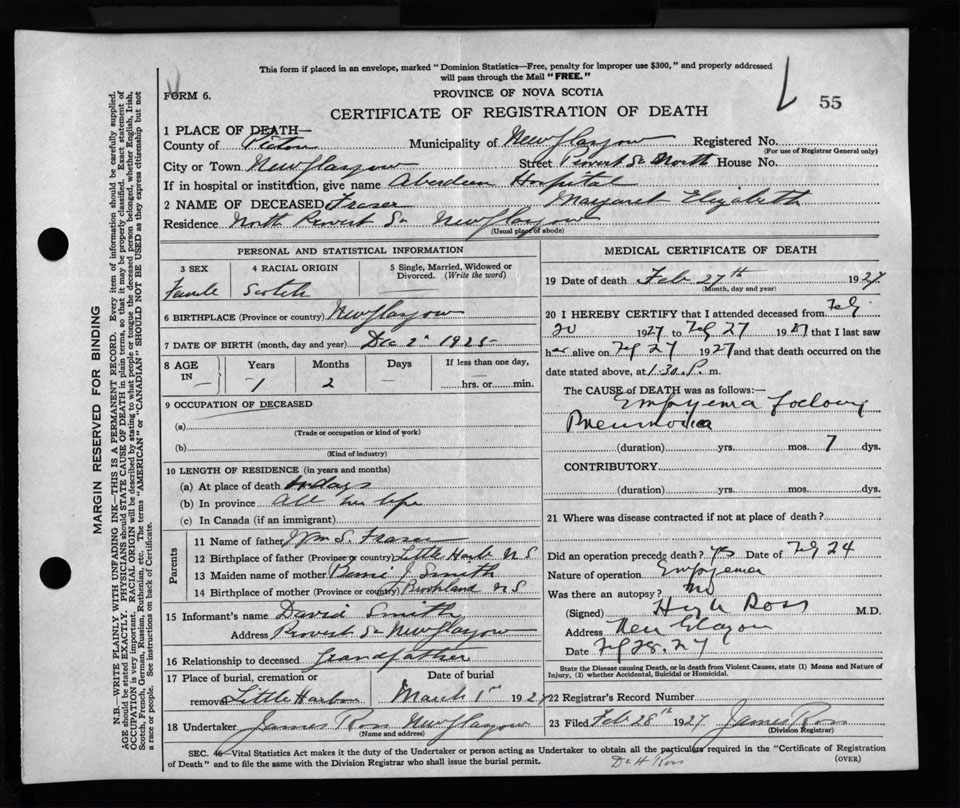 This form if placed in an envelope, marked "Dominion Statistics—Free, penalty for improper use $300," and properly addressed
will pass through the Mail "FREE."
FORM 6.
PROVINCE OF NOVA SCOTIA
55
CERTIFICATE OF REGISTRATION OF DEATH
1 PLACE OF DEATH—
County of Pictou Municipality of New Glasgow Registered No.
(For use of Registrar General only)
City or Town New Glasgow Street Provost St North House No.
If in hospital or institution, give name Aberdeen Hospital
2 NAME OF DECEASED Fraser Margaret Elizabeth
Residence North Provost St New Glasgow
(Usual place of abode)
PERSONAL AND STATISTICAL INFORMATION
3 SEX 4 RACIAL ORIGIN 5 Single, Married, Widowed or
Divorced. (Write the word)
Female Scotch
6 BIRTHPLACE (Province or country) New Glasgow
7 DATE OF BIRTH (month, day and year) Dec 2 1925
8 AGE Years Months Days If less than one day,
IN — 1 2 — hrs. or min.
9 OCCUPATION OF DECEASED
(a)
(Trade or occupation or kind of work)
(b)
(Kind of industry)
10 LENGTH OF RESIDENCE (in years and months)
(a) At place of death days
(b) In province all her life
(c) In Canada (if an immigrant)
Parents
11 Name of father Wm S. Fraser
12 Birthplace of father (Province or country) Little Harb N S
13 Maiden name of mother J Smith
14 Birthplace of mother (Province or country) N S
15 Informant's name David Smith
Address Provost St New Glasgow
16 Relationship to deceased Grandfather
17 Place of burial, cremation or Date of burial
removal Little Harbor March 1st 1927
18 Undertaker James Ross New Glasgow
(Name and address)
MEDICAL CERTIFICATE OF DEATH
19 Date of death Feb 27th 1927
(Month, day and year)
20 I HEREBY CERTIFY that I attended deceased from Feb
20 1927 to Feb 27 1927 that I last saw
her alive on Feb 27 1927 and that death occurred on the
date stated above, at 1.30 P. m.
The CAUSE of DEATH was as follows:—
Empyema following
Pneumonia
(duration) yrs. mos. 7 dys.
CONTRIBUTORY
(duration) yrs. mos. dys.
21 Where was disease contracted if not at place of death?
Did an operation precede death? yes Date of Feb 24
Nature of operation Empyema
Was there an autopsy? no
(Signed) Hugh Ross M.D.
Address New Glasgow
Date Feb 28. 27
State the Disease causing Death, or in death from Violent Causes, state (1) Means and Nature of
Injury, (2) whether Accidental, Suicidal or Homicidal.
22 Registrar's Record Number
23 Filed Feb 28th 1927 James Ross
(Division Registrar)
SEC. 46—Vital Statistics Act makes it the duty of the Undertaker or person acting as Undertaker to obtain all the particulars required in the "Certificate of Registration
of Death" and to file the same with the Division Registrar who shall issue the burial permit.
(OVER)
Dr H Ross
MARGIN RESERVED FOR BINDING
N.B.—WRITE PLAINLY WITH UNFADING INK—THIS IS A PERMANENT RECORD. Every item of information should be carefully supplied.
AGE should be stated EXACTLY. PHYSICIANS should STATE CAUSE OF DEATH in plain terms, so that it may be properly classified. Exact statement of
OCCUPATION is very important. RACIAL ORIGIN will be described by stating to what people or tongue the deceased person belonged, whether English, Irish,
Scotch, French, German, Russian, Ruthenian, etc. The terms "AMERICAN" or "CANADIAN" SHOULD NOT BE USED as they express citizenship but not
a race or people. See instructions on back of Certificate.